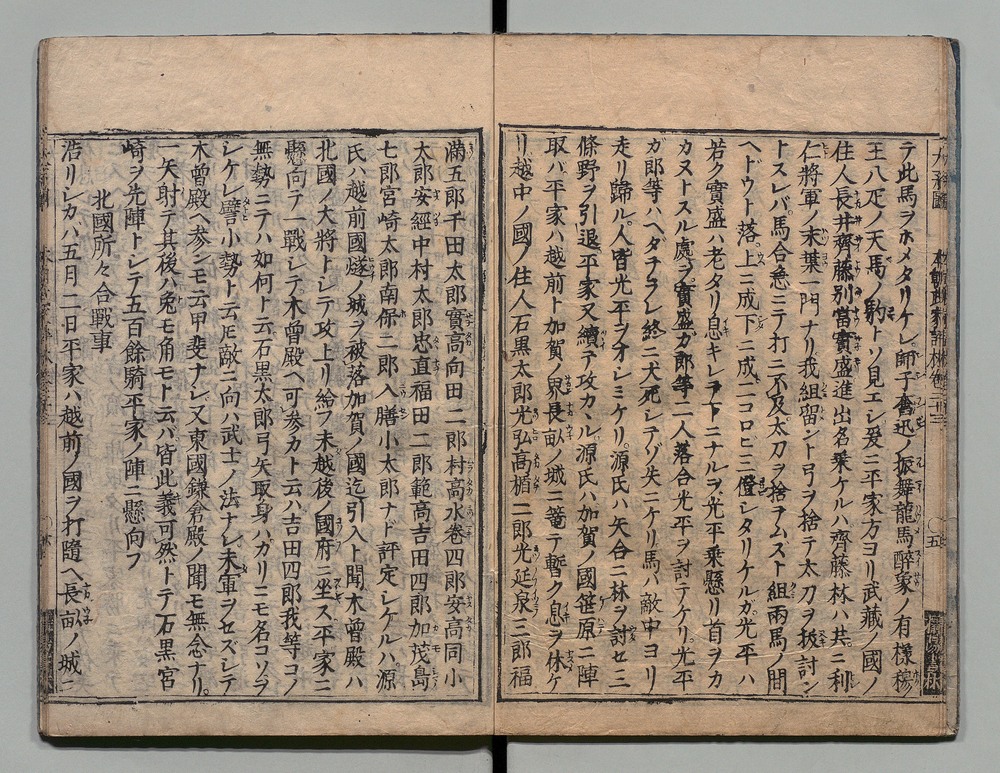 テ此馬ヲホメタリケレ師子奮迅ノ振舞龍馬酔象ノ有樣穆
王八疋ノ天馬ノ駒トソ見エシ爰ニ平家方ヨリ武藏ノ國ノ
住人長井齊藤別當實盛進出名乗ケルハ齊藤林ハ共ニ利
仁將軍ノ末葉一門ナリ我組留ント弓ヲ捨テ太刀ヲ抜討ン
トスレバ馬合急ニテ打ニ不及太刀ヲ捨テムズト組兩馬ノ間
ヘドウト落上ニ成下ニ成二コロビ三コロビシタリケルガ光平ハ
若ク實盛ハ老タリ息キレヲトニナルヲ光平乗懸リ首ヲカ
カヌトスル處ヲ實盛カ郎等二人落合光平ヲ討テケリ光平
ガ郎等ハヘダテラレ終ニ犬死シテゾ失ニケリ馬ハ敵中ヨリ
走リ歸ル人皆光平ヲオシミケリ源氏ハ矢合ニ林ヲ討セ三
條野ヲ引退平家又續テ攻カヽル源氏ハ加賀ノ國笹原ニ陣
取バ平家ハ越前ト加賀ノ界長畝ノ城ニ篭テ暫ク息ヲ休ケ
リ越中ノ國ノ住人石黒太郎光弘高楯二郎光延泉三郎福
滿五郎千田太郎實高向田二郎村高水卷四郎安高同小
太郎安經中村太郎忠直福田二郎範高吉田四郎加茂島
七郎宮崎太郎南保二郎入膳小太郎ナド評定シケルハ源
氏ハ越前國燧ノ城ヲ被落加賀ノ國迄引入ト聞木曾殿ハ
北國ノ大將トシテ攻上リ給フ未越後ノ國府ニ坐ス平家ニ
懸向テ一戰シテ木曾殿ヘ可參カト云ハ吉田四郎我等コノ
無勢ニテハ如何ト云石黒太郎弓矢取身ハカリニモ名コソヲ
シケレ譬小勢ト云ドモ敵ニ向ハ武士ノ法ナレ未軍ヲセズシテ
木曾殿ヘ参シモ云甲斐ナシ又東國鎌倉殿ノ聞モ無念ナリ
一矢射テ其後ハ兎モ角モト云バ皆此義可然トテ石黒宮
崎ヲ先陣トシテ五百餘騎平家ノ陣ニ懸向フ
北國所々合戰事
浩リシカバ五月二日平家ハ越前ノ國ヲ打隨ヘ長畝ノ城ニ